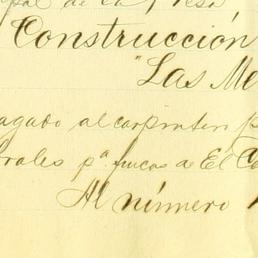 pal de la Presa
Construcción
"Las Me
agado al carpintero p
rales pª fincas de El Co
Al número 1